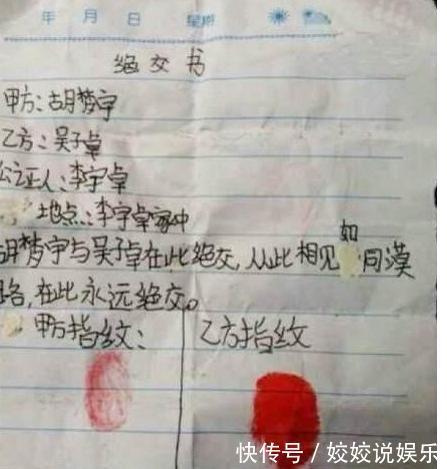 年 月 日 星期
绝交书
甲方:胡梦宇
乙方:吴子卓
公证人:李宇卓
地点:李宇卓家中
胡梦宇与吴子卓在此绝交,从此相见如同漠
路,在此永远绝交。
甲方指纹: 乙方指纹
快传号/姣姣说娱乐